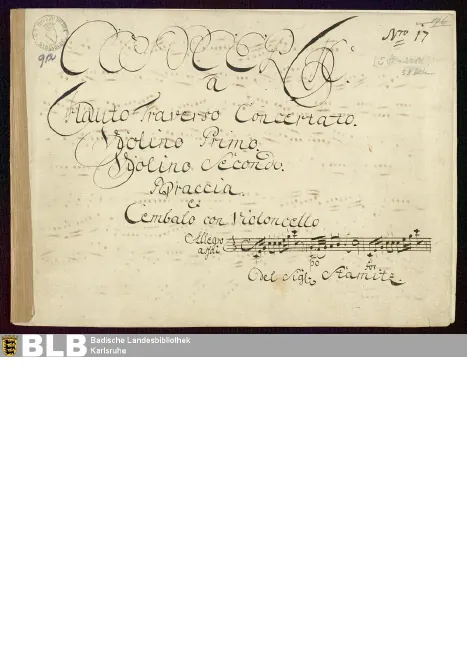 Nro 17
912
CONCERTO.
a
Flauto Traverso Concertato.
Violino Primo.
Violino Secondo.
Braccia.
e
Cembalo con Violoncello
Allegro
assai
po
for
Del Sigr. Stamitz.
BLB
Badische Landesbibliothek
Karlsruhe